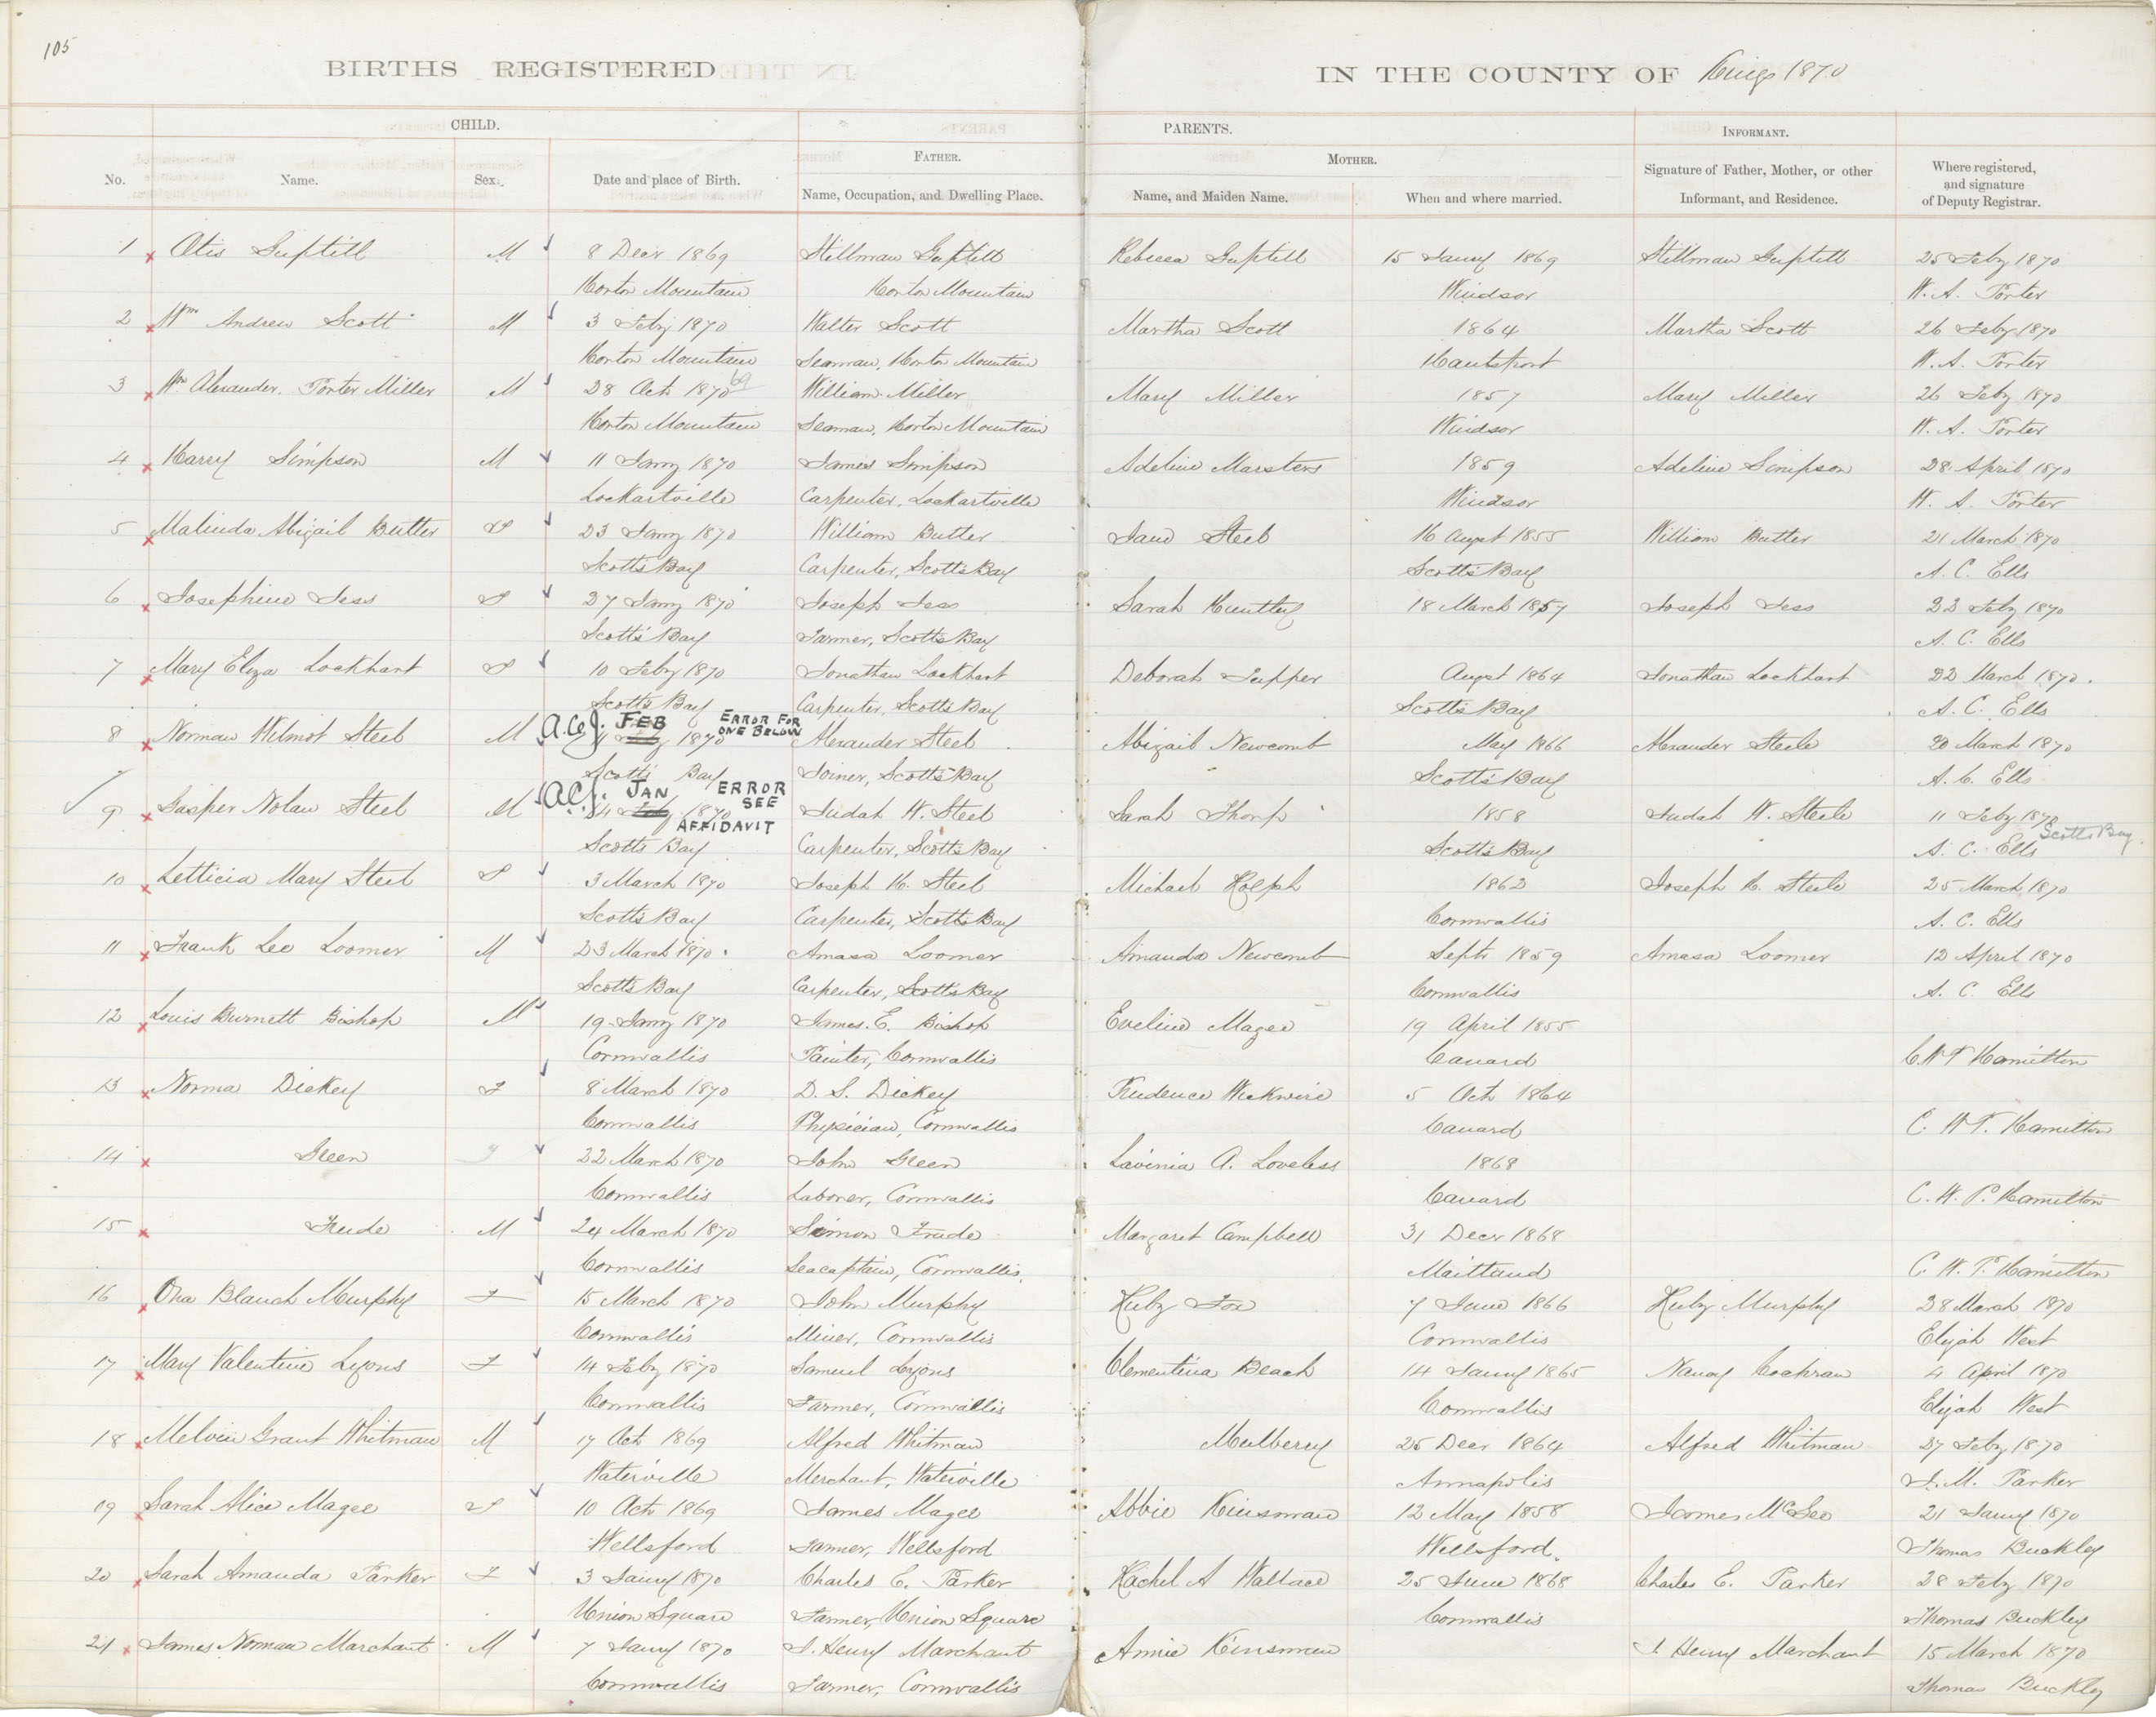 105
BIRTHS REGISTERED
IN THE COUNTY OF Kings 1870
CHILD.
PARENTS.
INFORMANT.
No.
Name.
Sex.
Date and place of Birth.
FATHER.
Name, Occupation, and Dwelling Place.
MOTHER.
Name, and Maiden Name.
When and where married.
Signature of Father, Mother, or other
Informant, and Residence.
Where registered,
and signature
of Deputy Registrar.
1 Otis Guptill M 8 Decr 1869 Stillman Guptill Rebecca Guptill 15 Jany 1869 Stillman Guptill 25 Feby 1870
Horton Mountain Horton Mountain Windsor W. A. Porter
2 Wm Andrew Scott M 3 Feby 1870 Walter Scott Martha Scott 1864 Martha Scott 26 Feby 1870
Horton Mountain Seaman, Horton Mountain Hantsport W. A. Porter
3 Wm Alexander Porter Miller M 28 Octr 1870 69 William Miller Mary Miller 1857 Mary Miller 26 Feby 1870
Horton Mountain Seaman, Horton Mountain Windsor W. A. Porter
4 Harry Simpson M 11 Jany 1870 James Simpson Adeline Marsters 1859 Adeline Simpson 28 April 1870
Lockartville Carpenter, Lockartville Windsor W. A. Porter
5 Malinda Abigail Butler F 23 Jany 1870 William Butler Jane Steel 16 Augst 1855 William Butler 21 March 1870
Scotts Bay Carpenter, Scotts Bay Scotts Bay A. C. Ells
6 Josephine Jess F 27 Jany 1870 Joseph Jess Sarah Huntley 18 March 1857 Joseph Jess 22 Feby 1870
Scotts Bay Farmer, Scotts Bay A. C. Ells
7 Mary Eliza Lockhart F 10 Feby 1870 Jonathan Lockhart Deborah Tupper Augst 1864 Jonathan Lockhart 22 March 1870.
Scotts Bay Carpenter, Scotts Bay Scotts Bay A. C. Ells
A.C.J. FEB ERROR FOR ONE BELOW
8 Norman Wilmot Steel M 1870 Alexander Steel Abigail Newcomb May 1866 Alexander Steele 20 March 1870
Scotts Bay Joiner, Scotts Bay Scotts Bay A. C. Ells
A.C.J. JAN ERROR SEE AFFIDAVIT
9 Gasper Nolan Steel M 14 1870 Judah W. Steel Sarah Thorp 1858 Judah W. Steele 11 Feby 1870
Scotts Bay Carpenter, Scotts Bay Scotts Bay A. C. Ells Scotts Bay
10 Letticia Mary Steel F 3 March 1870 Joseph H. Steel Michael Rolph 1862 Joseph H. Steele 25 March 1870
Scotts Bay Carpenter, Scotts Bay Cornwallis A. C. Ells
11 Frank Leo Loomer M 23 March 1870. Amasa Loomer Amanda Newcomb Septr 1859 Amasa Loomer 12 April 1870
Scotts Bay Carpenter, Scotts Bay Cornwallis A. C. Ells
12 Louis Burnett Bishop M 19 Jany 1870 James E. Bishop Eveline Magee 19 April 1855
Cornwallis Painter, Cornwallis Canard C. W. P. Hamilton
13 Norma Dickey F 8 March 1870 D. S. Dickey Prudence Wickwire 5 Octr 1864
Cornwallis Physician, Cornwallis Canard C. W. P. Hamilton
14 Green 22 March 1870 John Green Lavinia A. Loveless 1868
Cornwallis Laborer, Cornwallis Canard C. W. P. Hamilton
15 Frude M 24 March 1870 Simon Frude Margaret Campbell 31 Decr 1868
Cornwallis Seacaptain, Cornwallis Maitland C. W. P. Hamilton
16 Ora Blanch Murphy F 15 March 1870 John Murphy Ruby Fox 7 June 1866 Ruby Murphy 28 March 1870
Cornwallis Miner, Cornwallis Cornwallis Elijah West
17 Mary Valentine Lyons F 14 Feby 1870 Samuel Lyons Clementina Beach 14 Jany 1865 Nancy Cochran 4 April 1870
Cornwallis Farmer, Cornwallis Cornwallis Elijah West
18 Melvin Grant Whitman M 17 Octr 1869 Alfred Whitman Mulberry 25 Decr 1864 Alfred Whitman 27 Feby 1870
Waterville Merchant, Waterville Annapolis I. M. Parker
19 Sarah Alice Magee F 10 Octr 1869 James Magee Abbie Kinsman 12 May 1858 James McGee 21 Jany 1870
Wellsford Farmer, Wellsford Wellsford. Thomas Buckley
20 Sarah Amanda Parker F 3 Jany 1870 Charles E. Parker Rachel A Wallace 25 June 1868 Charles E. Parker 28 Feby 1870
Union Square Farmer, Union Square Cornwallis Thomas Buckley
21 James Norman Marchant M 7 Jany 1870 I. Henry Marchant Annie Kinsman I. Henry Marchant 15 March 1870
Cornwallis Farmer, Cornwallis Thomas Buckley